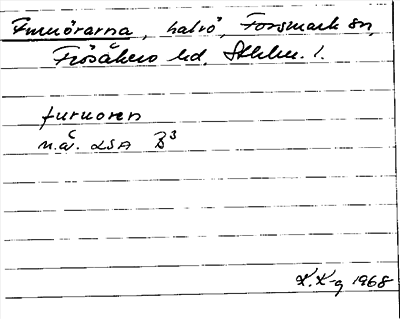 Furuörarna, halvö, Forsmark sn,
Frösåkers hd, Sthlms l.
furuoren
n.ä. LSA B3
K.K-g 1968